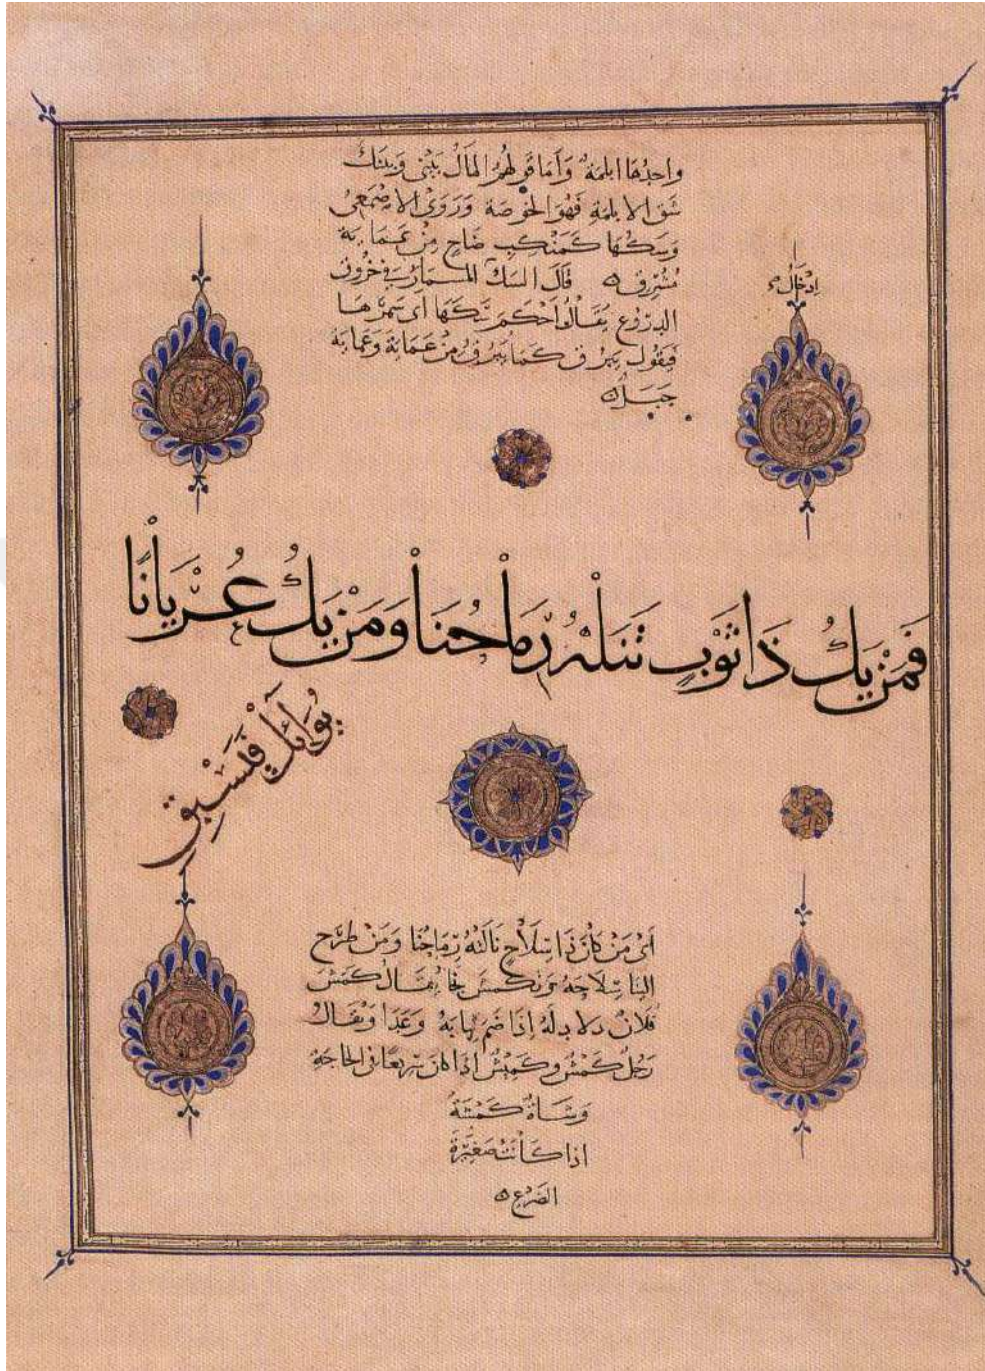 واحدها ابلمة وَأما قولهم المال بيني وبينك
شق الابلمة فهو الخوصة وَرَوَى الاصمعي
وسكها كمنكب ضاحٍ من عَمَاية
مشرق قَالَ السك المسمار في خروق
الدروع يقال احكم سكها اى سمرها
فيقول يبرق كما يبرق من عماية وعماية
جَبَل
ادخال
فَمَنْ يَكُ ذَا ثَوْبٍ تَنَلْهُ رِمَاحُنَا وَمَنْ يَكُ عُرْيَانًا
يُوَائِلْ فَيَسْبِقِ
أَىْ مَنْ كَانَ ذَا سِلَاحٍ نَالَتْهُ رِمَاحُنَا وَمَنْ طَرَحَ
الينا سلاحه وتكمش نجا يقال كمش
فلان ذلاذله إذا ضم ثيابه وَعَدَا ويقال
رَجُلٌ كَمْشٌ وكَمِيشٌ اذا كان سريعًا فى الحاجة
وَشَاةٌ كَمْشَةٌ
اذا كَانَتْ صَغِيْرَةَ
الضرع